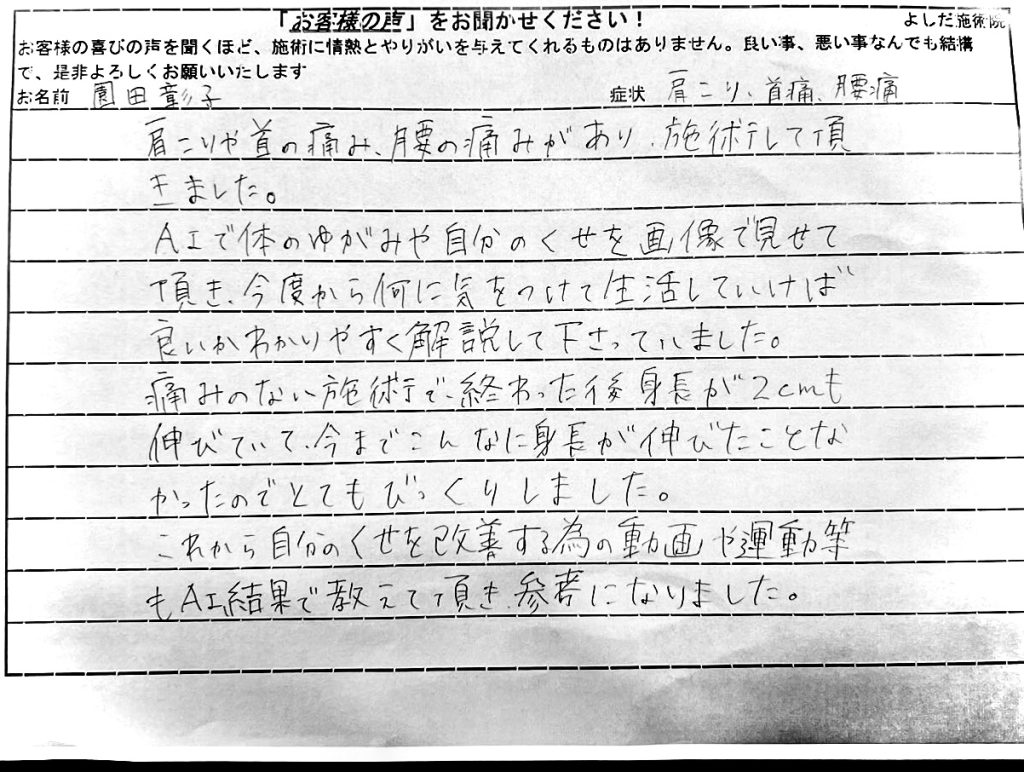 「お客様の声」をお聞かせください！
よしだ施術院
お客様の喜びの声を聞くほど、施術に情熱とやりがいを与えてくれるものはありません。良い事、悪い事なんでも結構
で、是非よろしくお願いいたします
お名前 園田彰子 症状 肩こり、首痛、腰痛
肩こりや首の痛み、腰の痛みがあり、施術して頂
きました。
AIで体のゆがみや自分のくせを画像で見せて
頂き、今度から何に気をつけて生活していけば
良いかわかりやすく解説して下さっていました。
痛みのない施術で、終わった後身長が2cmも
伸びていて、今までこんなに身長が伸びたことな
かったのでとてもびっくりしました。
これから自分のくせを改善する為の動画や運動等
もAI結果で教えて頂き、参考になりました。